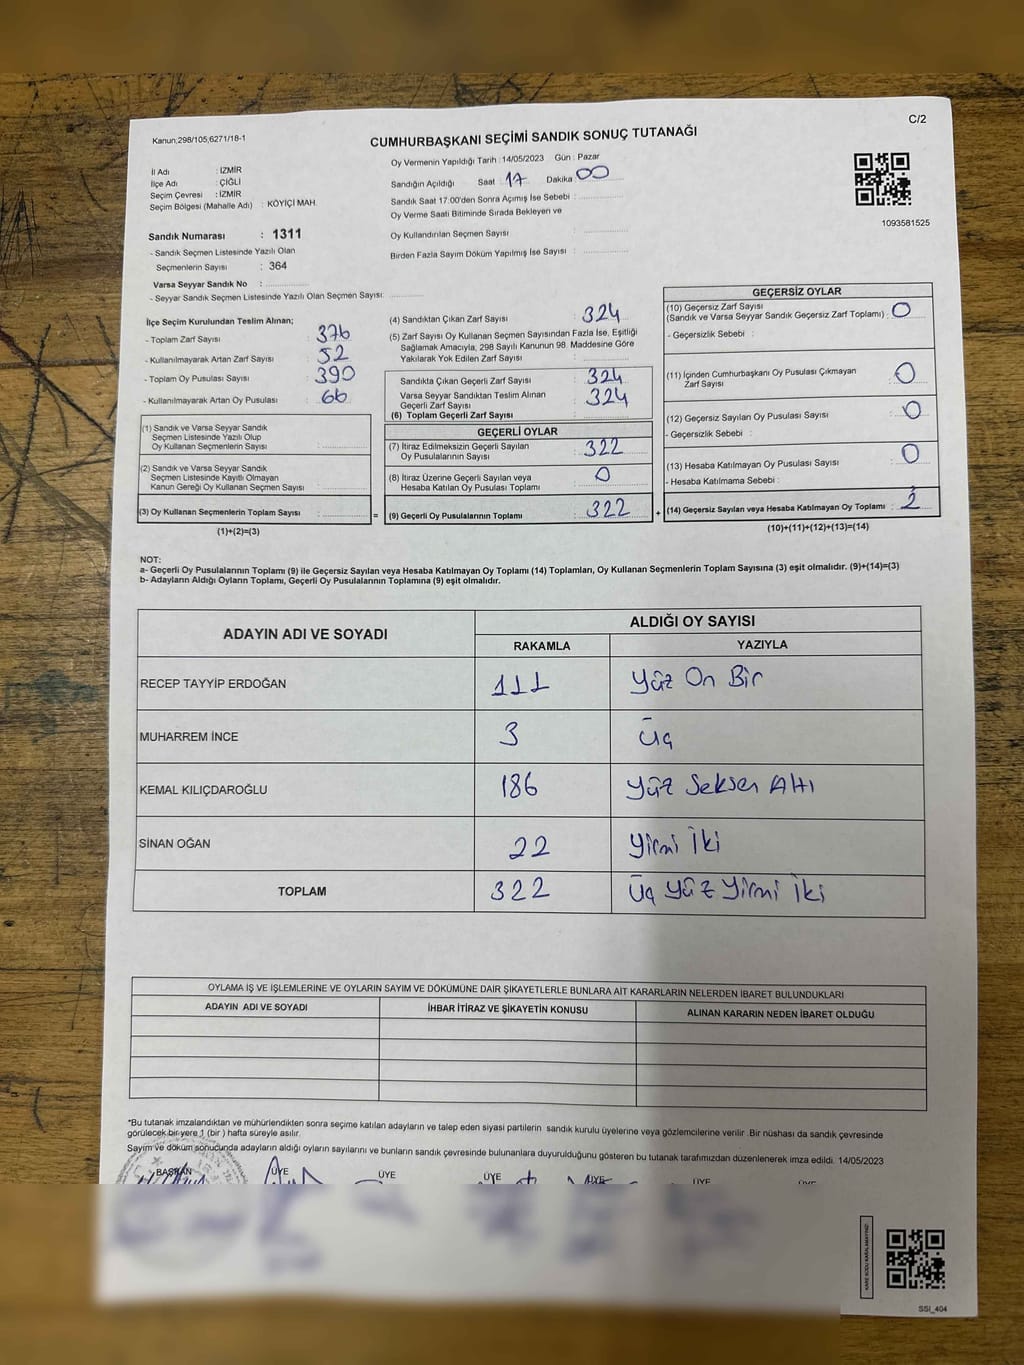 C/2
Kanun,298/105,6271/18-1
CUMHURBAŞKANI SEÇİMİ SANDIK SONUÇ TUTANAĞI
Oy Vermenin Yapıldığı Tarih : 14/05/2023 Gün : Pazar
İl Adı : İZMİR
İlçe Adı : ÇİĞLİ
Seçim Çevresi : İZMİR
Seçim Bölgesi (Mahalle Adı) : KÖYİÇİ MAH.
Sandığın Açıldığı Saat : 17 Dakika 00
Sandık Saat 17.00'den Sonra Açımış İse Sebebi :
Oy Verme Saati Bitiminde Sırada Bekleyen ve
Oy Kullandırılan Seçmen Sayısı :
Birden Fazla Sayım Döküm Yapılmış İse Sayısı :
1093581525
Sandık Numarası : 1311
- Sandık Seçmen Listesinde Yazılı Olan
Seçmenlerin Sayısı : 364
Varsa Seyyar Sandık No :
- Seyyar Sandık Seçmen Listesinde Yazılı Olan Seçmen Sayısı:
İlçe Seçim Kurulundan Teslim Alınan;
- Toplam Zarf Sayısı : 376
- Kullanılmayarak Artan Zarf Sayısı : 52
- Toplam Oy Pusulası Sayısı : 390
- Kullanılmayarak Artan Oy Pusulası : 66
(1) Sandık ve Varsa Seyyar Sandık
Seçmen Listesinde Yazılı Olup
Oy Kullanan Seçmenlerin Sayısı :
(2) Sandık ve Varsa Seyyar Sandık
Seçmen Listesinde Kayıtlı Olmayan
Kanun Gereği Oy Kullanan Seçmen Sayısı :
(3) Oy Kullanan Seçmenlerin Toplam Sayısı :
(1)+(2)=(3)
(4) Sandıktan Çıkan Zarf Sayısı : 324
(5) Zarf Sayısı Oy Kullanan Seçmen Sayısından Fazla İse, Eşitliği
Sağlamak Amacıyla, 298 Sayılı Kanunun 98. Maddesine Göre
Yakılarak Yok Edilen Zarf Sayısı :
Sandıkta Çıkan Geçerli Zarf Sayısı : 324
Varsa Seyyar Sandıktan Teslim Alınan
Geçerli Zarf Sayısı : 324
(6) Toplam Geçerli Zarf Sayısı :
GEÇERLİ OYLAR
(7) İtiraz Edilmeksizin Geçerli Sayılan
Oy Pusulalarının Sayısı : 322
(8) İtiraz Üzerine Geçerli Sayılan veya
Hesaba Katılan Oy Pusulası Toplamı : 0
= (9) Geçerli Oy Pusulalarının Toplamı : 322
GEÇERSİZ OYLAR
(10) Geçersiz Zarf Sayısı
(Sandık ve Varsa Seyyar Sandık Geçersiz Zarf Toplamı) : 0
- Geçersizlik Sebebi :
(11) İçinden Cumhurbaşkanı Oy Pusulası Çıkmayan
Zarf Sayısı : 0
(12) Geçersiz Sayılan Oy Pusulası Sayısı : 0
- Geçersizlik Sebebi :
(13) Hesaba Katılmayan Oy Pusulası Sayısı : 0
- Hesaba Katılmama Sebebi :
+ (14) Geçersiz Sayılan veya Hesaba Katılmayan Oy Toplamı : 2
(10)+(11)+(12)+(13)=(14)
NOT:
a- Geçerli Oy Pusulalarının Toplamı (9) ile Geçersiz Sayılan veya Hesaba Katılmayan Oy Toplamı (14) Toplamları, Oy Kullanan Seçmenlerin Toplam Sayısına (3) eşit olmalıdır. (9)+(14)=(3)
b- Adayların Aldığı Oyların Toplamı, Geçerli Oy Pusulalarının Toplamına (9) eşit olmalıdır.
ADAYIN ADI VE SOYADI ALDIĞI OY SAYISI
RAKAMLA YAZIYLA
RECEP TAYYİP ERDOĞAN 111 Yüz On Bir
MUHARREM İNCE 3 Üç
KEMAL KILIÇDAROĞLU 186 Yüz Seksen Altı
SİNAN OĞAN 22 Yirmi İki
TOPLAM 322 Üç Yüz Yirmi İki
OYLAMA İŞ VE İŞLEMLERİNE VE OYLARIN SAYIM VE DÖKÜMÜNE DAİR ŞİKAYETLERLE BUNLARA AİT KARARLARIN NELERDEN İBARET BULUNDUKLARI
ADAYIN ADI VE SOYADI İHBAR İTİRAZ VE ŞİKAYETİN KONUSU ALINAN KARARIN NEDEN İBARET OLDUĞU
*Bu tutanak imzalandıktan ve mühürlendikten sonra seçime katılan adayların ve talep eden siyasi partilerin sandık kurulu üyelerine veya gözlemcilerine verilir .Bir nüshası da sandık çevresinde
görülecek bir yere 1 (bir ) hafta süreyle asılır.
Sayım ve döküm sonucunda adayların aldığı oyların sayılarını ve bunların sandık çevresinde bulunanlara duyurulduğunu gösteren bu tutanak tarafımızdan düzenlenerek imza edildi. 14/05/2023
BAŞKAN ÜYE ÜYE ÜYE ÜYE ÜYE
KARE KODU KARALAMAYINIZ!
SSI_404